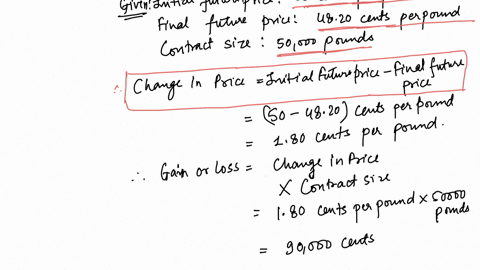 Given: Initial future price:
Final future price: 48.20 cents per pound
Contract size : 50,000 pounds
∴ Change In Price = Initial Future price - Final future
price
= (50 - 48.20) cents per pound
= 1.80 cents per pound.
∴ Gain or Loss = Change in Price
X Contract size
= 1.80 cents per pound × 50000
pounds
= 90,000 cents